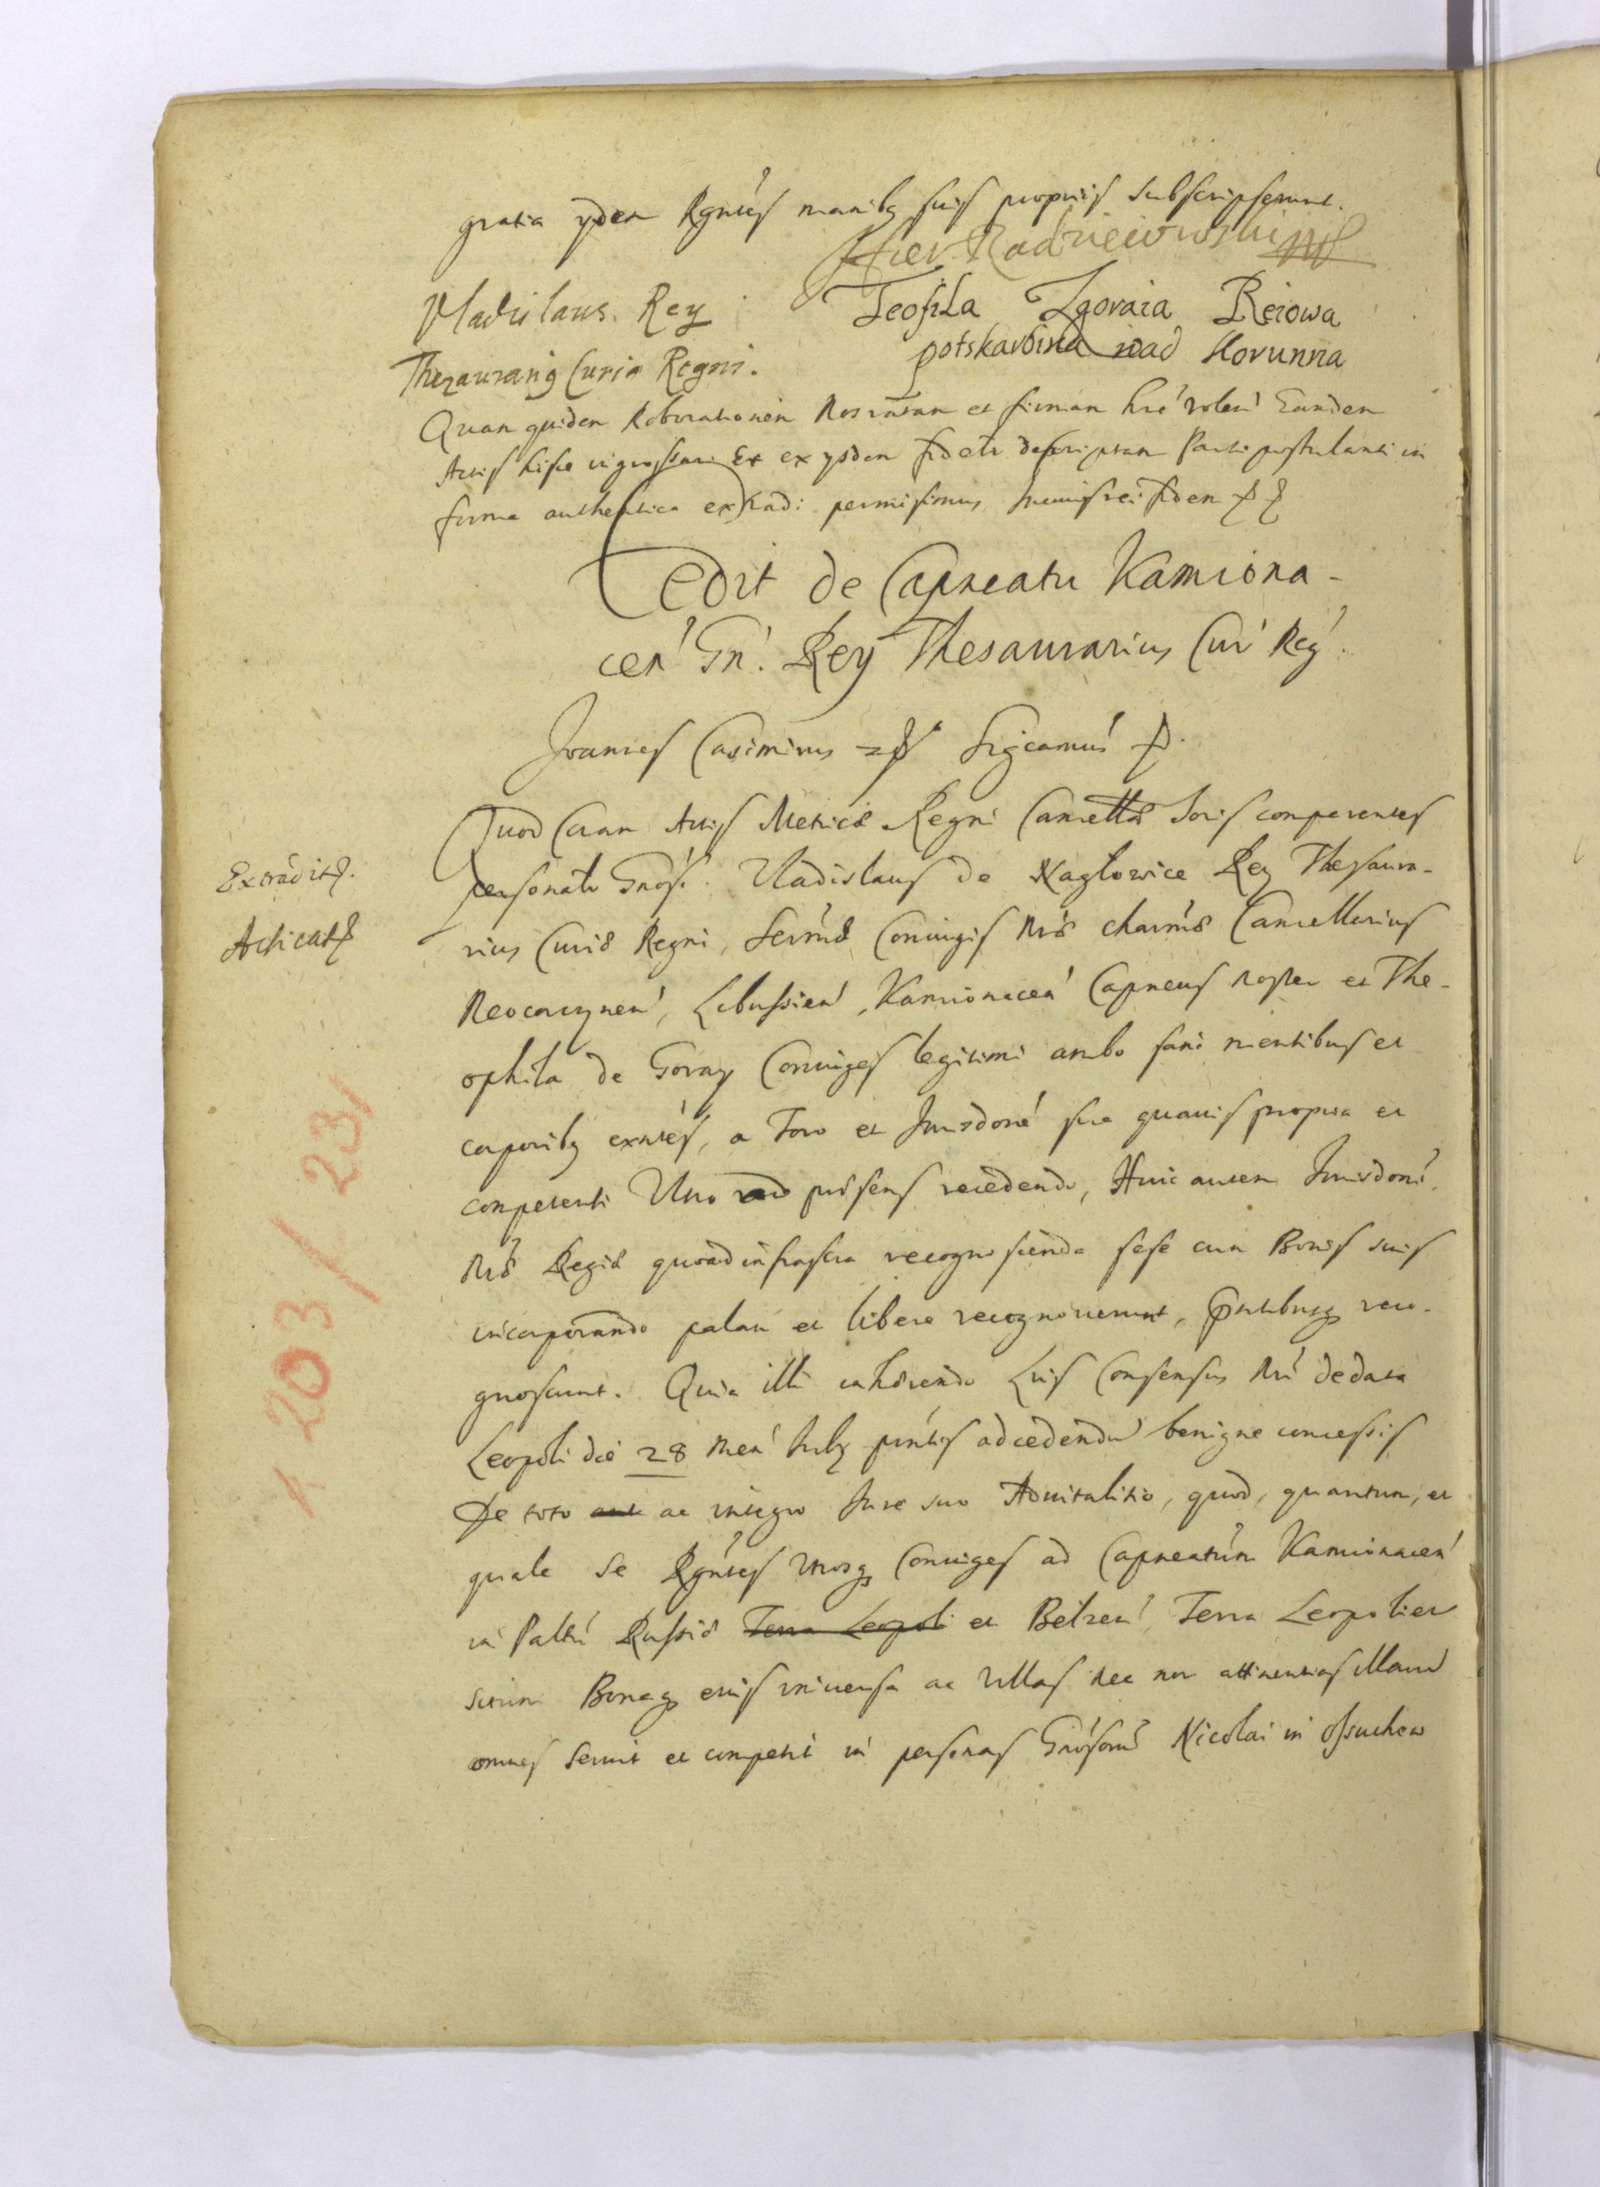 gratia ijdem Rgntes manibq suis propriis subscripserunt.
Hier Radzieiowski mp
Vladislaus Rey
Teofila Zgoraia Reiowa
Thezaurariq Curiæ Regni.
potskarbina nad Korunna
Quam quidem Roborationem Nos ratam et firmam hre volen Eandem
Actis hisce ingrossari Et ex ijsdem fidelr descriptam Parti postulanti in
forma authentica extradi permisimus, In cuius rei fidem
Cedit de Capneatu Kamiona-
cen Gn. Rey Thesaurarius Cur Reg.
Joannes Casimirus Sigcamus
Quod Coram Actis Metrices Regni Cancellæ
personalr Gnosi. Vladislaus de Nagłowice Rey Thesaura-
Extradit.
rius Curiæ Regni, Sermæ Coniugis Nræ charmæ Cancellarius
Acticat
Neocorcynen, Libussien, Kamionacen Capneus noster et The-
ophila de Goray Coniuges legitimi ambo sani mentibus et
corporibq exntes, a Foro et Jurisdone sua quavis propria et
competenti Uno ad præsens recedendo, Huic autem Jurisdoni
Nræ Regiæ quoad infrascra recognoscenda sese cum Bonis suis
incorporando palam et libere recognoverunt, Pntibusq reco-
gnoscunt. Quia illi inhærendo Lris Consensus Nri de data
Leopoli die 28 Men July pntis ad cedendu benigne concessis
De toto ac integro Jure suo Advitalitio, quod, quantum, et
quale se Rgntes utrosq Coniuges ad Capneatum Kamionacen
in Paltu Russiæ Terra Leopoli et Belzen Terra Leopolien
situm Bonaq eius universa ac Villas nec non attinentias illaru
omnes servit et competit in personas Gnosoru Nicolai in Ossuchow
1203/23